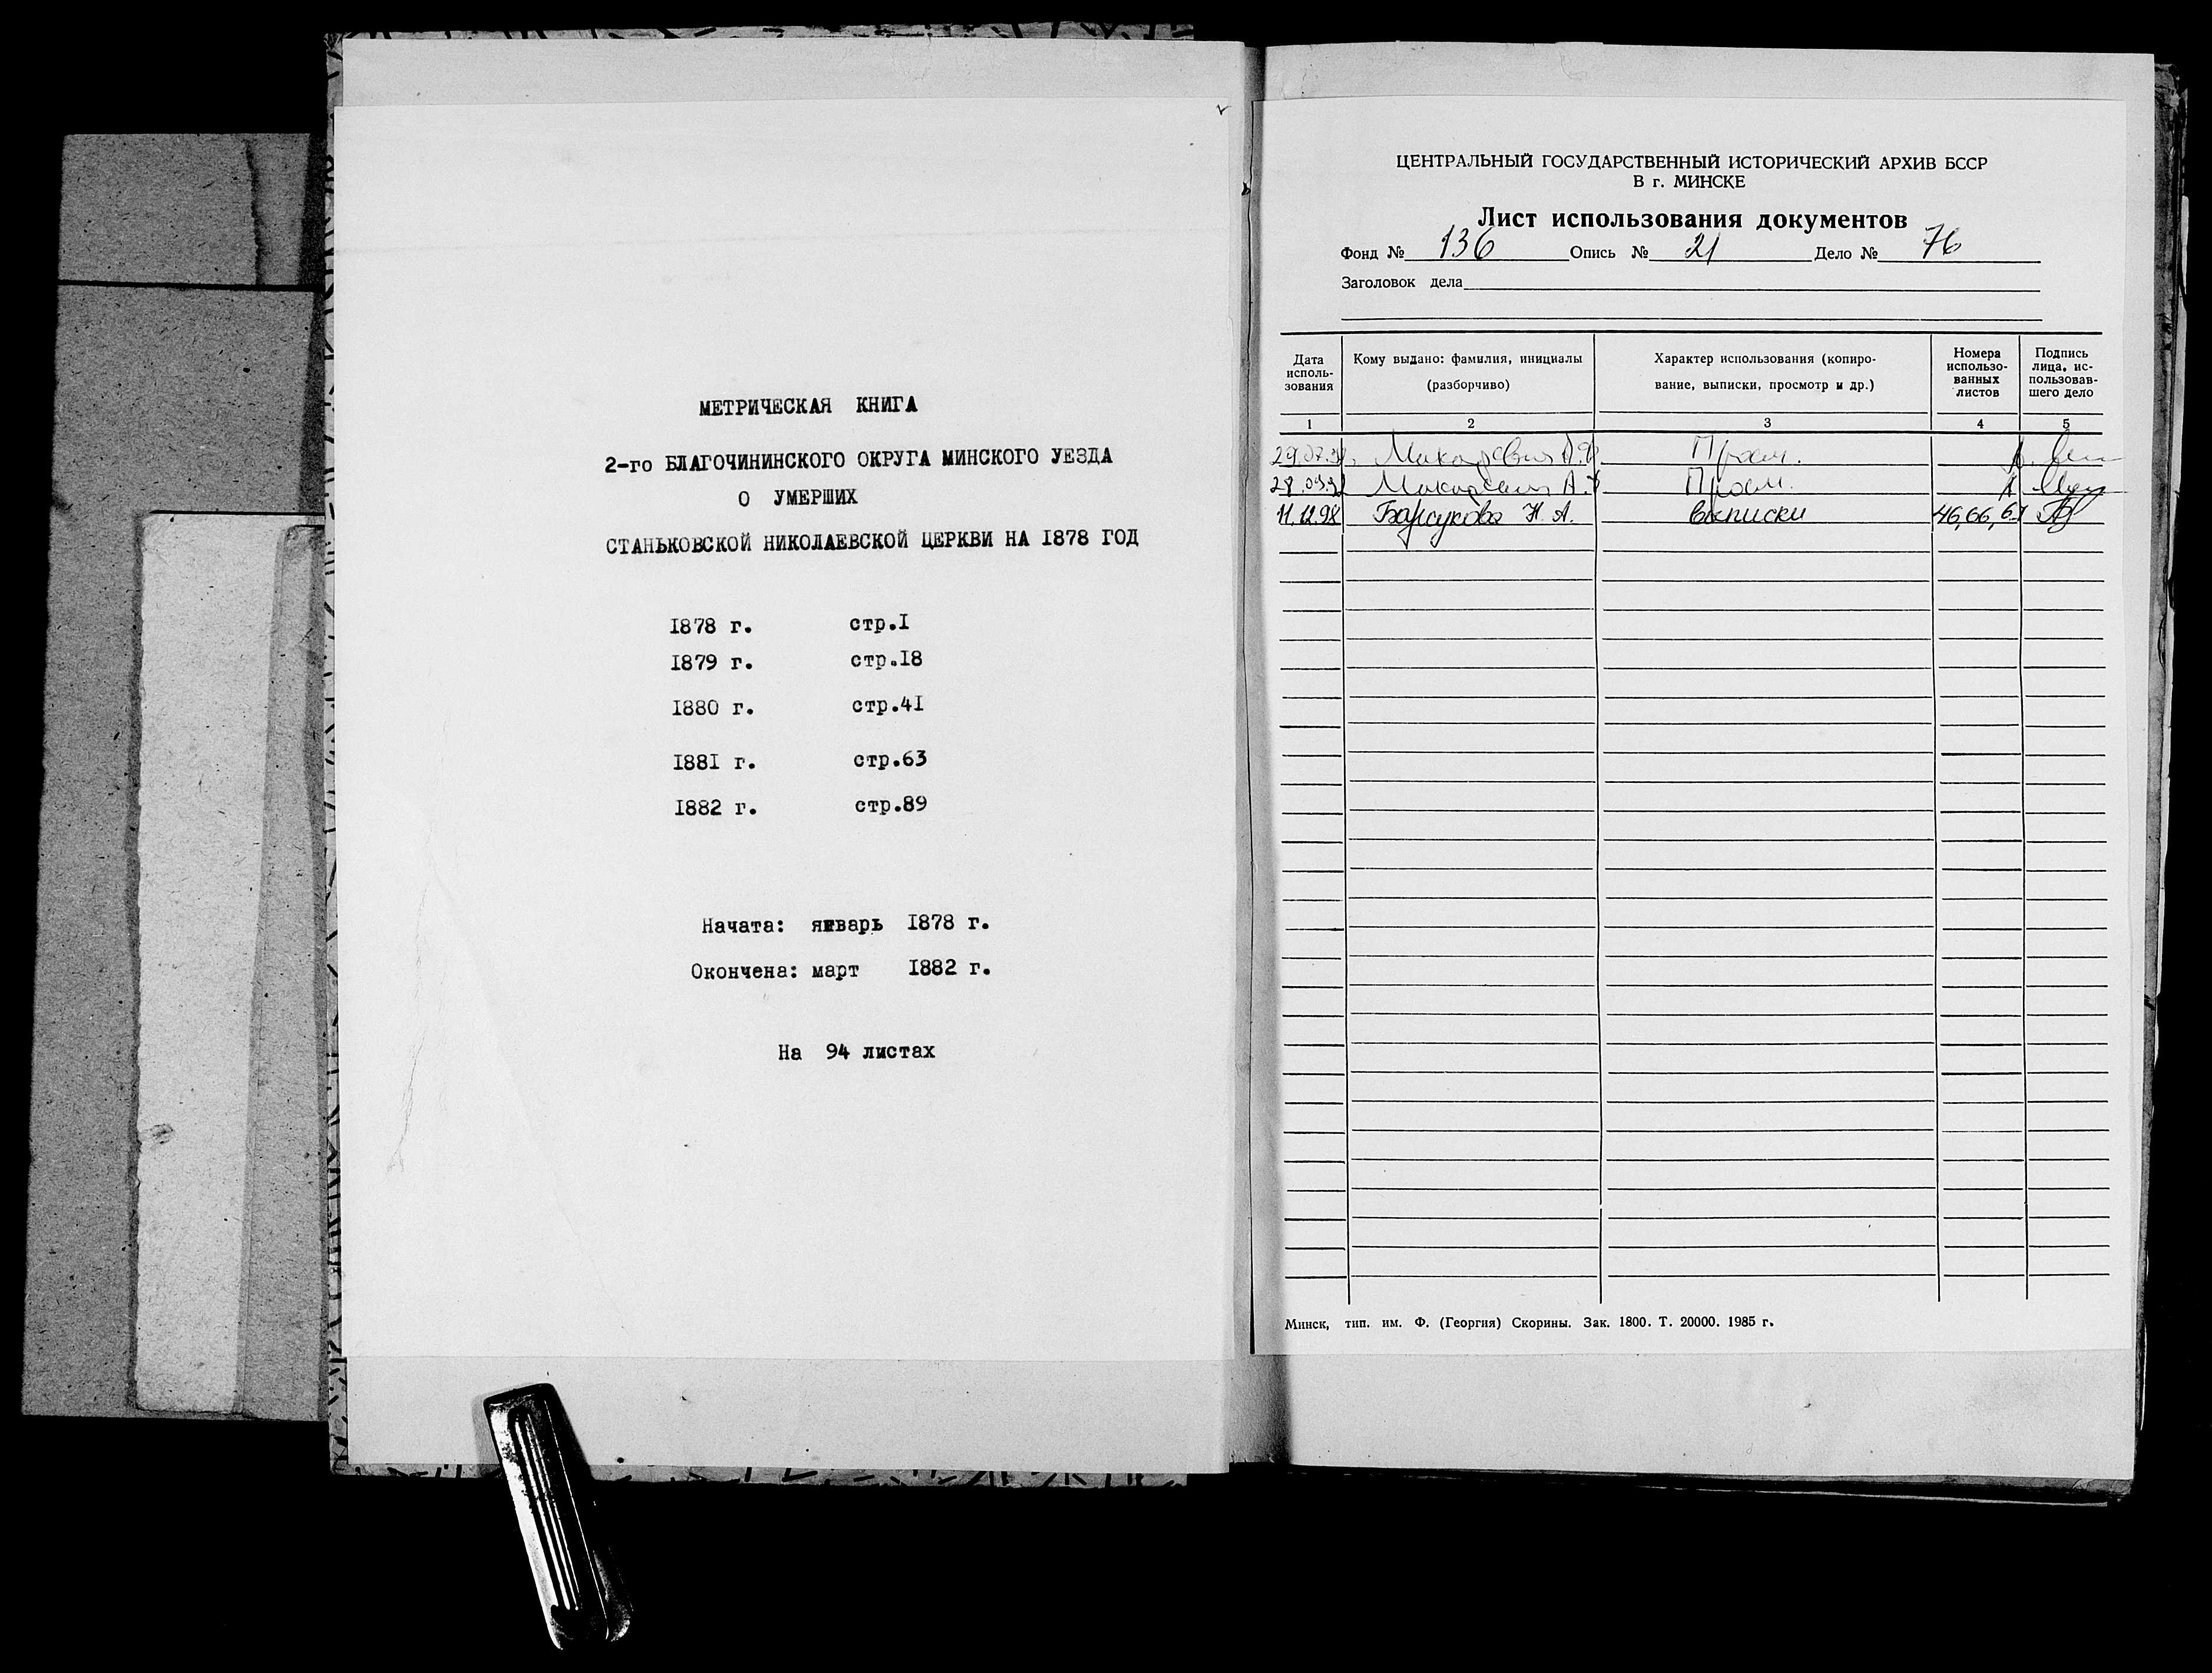 МЕТРИЧЕСКАЯ КНИГА
2-го БЛАГОЧИНИНСКОГО ОКРУГА МИНСКОГО УЕЗДА
О УМЕРШИХ
СТАНЬКОВСКОЙ НИКОЛАЕВСКОЙ ЦЕРКВИ НА 1878 ГОД
1878 г. стр.1
1879 г. стр.18
1880 г. стр.41
1881 г. стр.63
1882 г. стр.89
Начата: январь 1878 г.
Окончена: март 1882 г.
На 94 листах
ЦЕНТРАЛЬНЫЙ ГОСУДАРСТВЕННЫЙ ИСТОРИЧЕСКИЙ АРХИВ БССР
В г. МИНСКЕ
Лист использования документов
Фонд № 136 Опись № 21 Дело № 76
Заголовок дела
Дата исполь-зования
Кому выдано: фамилия, инициалы (разборчиво)
Характер использования (копиро-вание, выписки, просмотр и др.)
Номера использо-ванных листов
Подпись лица, ис-пользовав-шего дело
1 2 3 4 5
Макаревич Просм.
Макаревич А. Просм.
11.12.98 Барсукова Н. А. выписки 46,66,
Минск, тип. им. Ф. (Георгия) Скорины. Зак. 1800. Т. 20000. 1985 г.